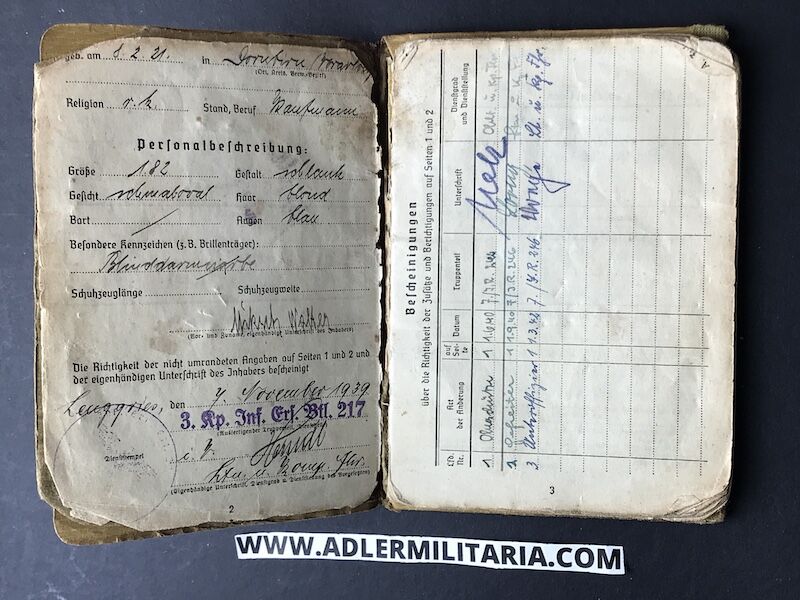 geb. am 8. 2. 21. in Dornbirn
(Ort, Kreis, Verw.-Bezirk)
Religion r. k. Stand, Beruf Kaufmann
Personalbeschreibung:
Größe 182 Gestalt schlank
Gesicht schmaloval Haar blond
Bart / Augen blau
Besondere Kennzeichen (z. B. Brillenträger):
Blinddarmnarbe
Schuhzeuglänge Schuhzeugweite
Walter
(Vor- und Zuname, eigenhändige Unterschrift des Inhabers)
Die Richtigkeit der nicht umrandeten Angaben auf Seiten 1 und 2 und
der eigenhändigen Unterschrift des Inhabers bescheinigt
Lenggries, den 7. November 1939
3. Kp. Inf. Ers. Btl. 217
(Ausfertigender Truppenteil, Dienststelle)
Dienststempel
(Eigenhändige Unterschrift, Dienstgrad u. Dienststellung des Vorgesetzten)
2
Bescheinigungen
über die Richtigkeit der Zusätze und Berichtigungen auf Seiten 1 und 2
Lfd. Nr. Art der Änderung auf Seite Datum Truppenteil Unterschrift Dienstgrad und Dienststellung
1 1 1.6.40 7./J.R. 246
2 Gefreiter 1 1.9.40 7/J.R. 246
3 Unteroffizier 1 1.3.42 7./J.R. 246 Lt. u. Kp. Fhr.
3
WWW.ADLERMILITARIA.COM